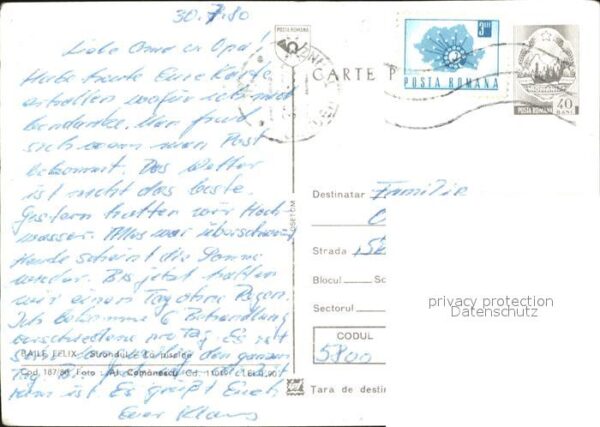 30.7.80
Liebe Oma u. Opa!
Habe heute Eure Karte
erhalten wofür ich mich
bedanke. Man freut
sich wenn man Post
bekommt. Das Wetter
ist nicht das beste.
Gestern hatten wir Hoch
wasser. Alles war überschwemmt
Heute scheint die Sonne
wieder. Bis jetzt hatten
wir einen Tag ohne Regen.
Ich bekomme 6 Behandlung
verschiedene pro Tag. Es ist
den ganzen
BĂILE FELIX - Ştrandul
Tag
Cod 187/80 Foto : Al. Comănescu
ist. Es grüßt Euch
Euer Klaus
POSTA ROMANA
CARTE P
3 LEI
POSTA ROMANA
POSTA ROMANA 40 BANI
Destinatar Familie
Strada
Blocul Sc
Sectorul
CODUL
5800
Tara de desti
privacy protection
Datenschutz